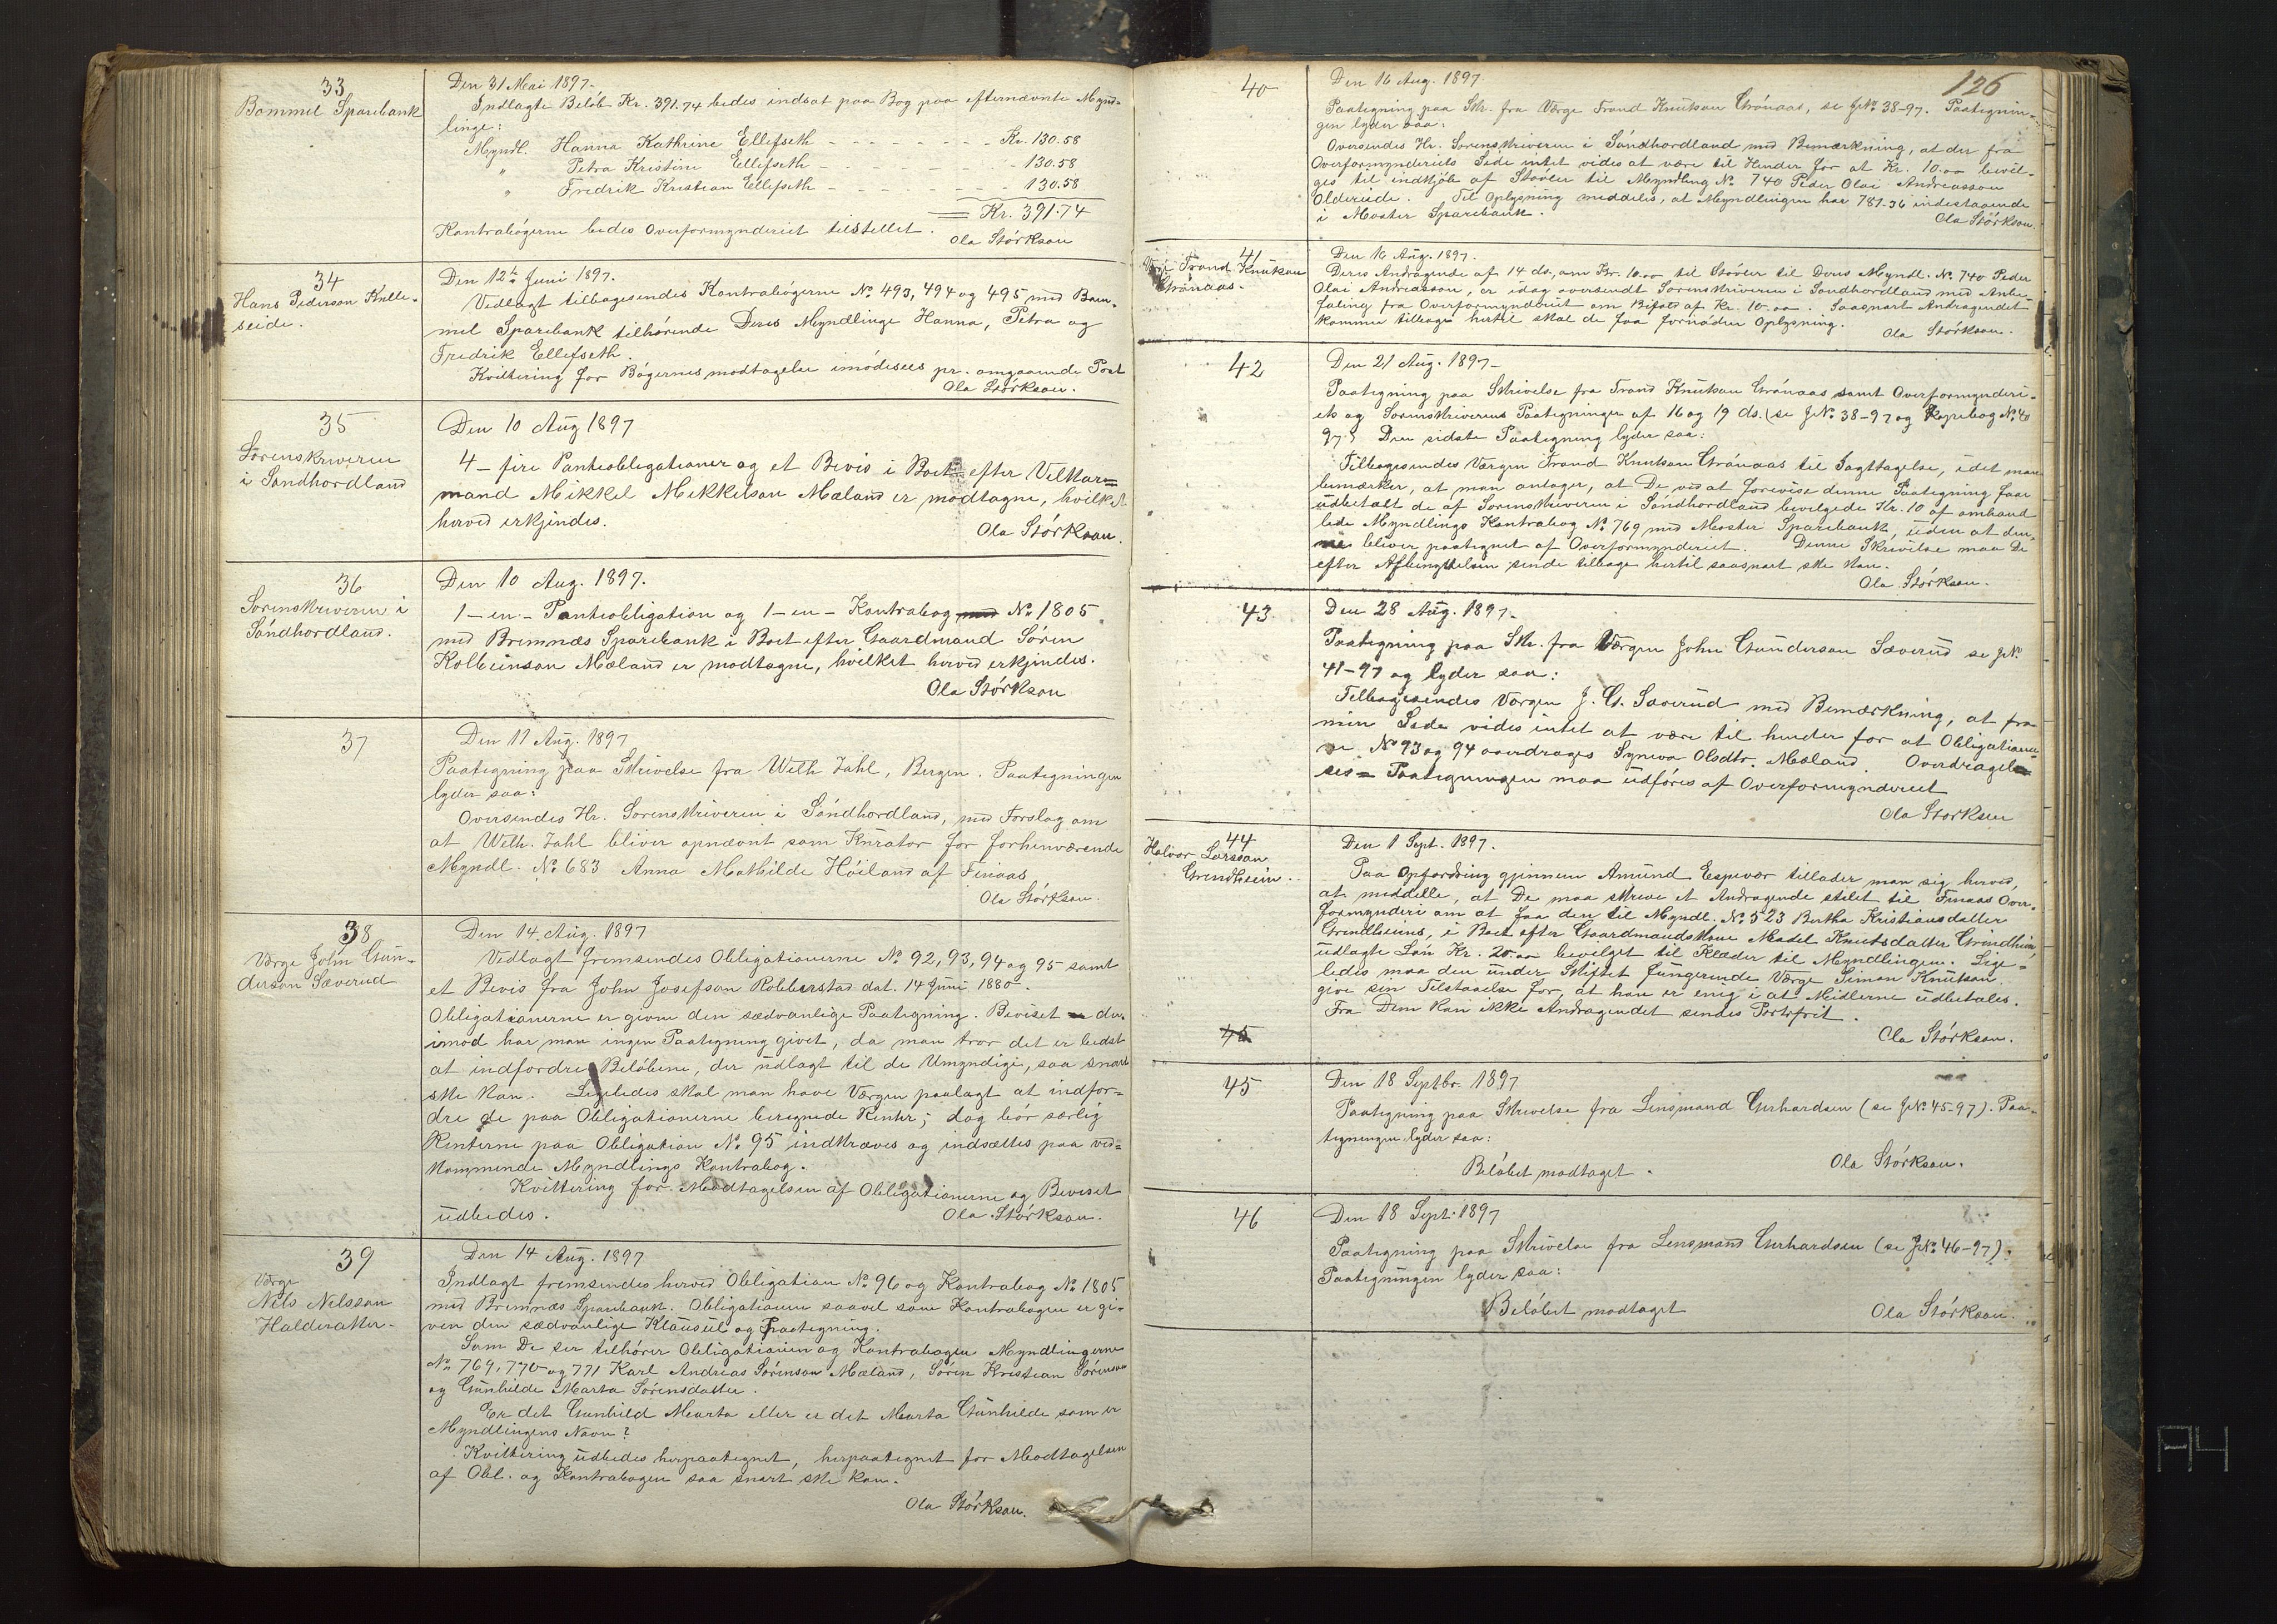 33
Bommel Sparebank
Den 31 Mai 1897.
Indlagte Beløb Kr. 391.74 bedes indsat paa Bog paa efternævnte Mynd-
linge:
Myndl. Hanna Kathrine Ellefseth - - - - - - - - Kr. 130.58
" Petra Kristine Ellefseth - - - - - - - - 130.58
" Fredrik Kristian Ellefseth - - - - - - - 130.58
Kr. 391.74
Kontrabøgerne bedes Overformynderiet tilstellet.
Ola Størkson
34
Hans Pederson Kulle-
seide.
Den 12te Juni 1897.
Vedlagt tilbagesendes Kontrabøgerne No 493, 494 og 495 med Bom-
mel Sparebank tilhørende Deres Myndlinge Hanna, Petra og
Fredrik Ellefseth.
Kvittering for Bøgernes modtagelse imødesees pr. omgaaende Post
Ola Størkson.
35
Sorenskriveren
i Søndhordland
Den 10 Aug 1897
4 - fire Panteobligationer og et Bevis i Boet efter Velkar=
mand Mikkel Mikkelson Mæland er modtagne, hvilket
herved erkjendes.
Ola Størkson.
36
Sorenskriveren i
Søndhordland.
Den 10 Aug. 1897.
1 - en - Panteobligation og 1 - en - Kontrabog No 1805
med Bremnæs Sparebank i Boet efter Gaardmand Søren
Kolbeinson Mæland er modtagne, hvilket herved erkjendes.
Ola Størkson
37
Den 11 Aug. 1897
Paategning paa Skrivelse fra Welh. Jahl, Bergen. Paategningen
lyder saa:
Oversendes Hr. Sorenskriveren i Søndhordland, med Forslag om
at Welh. Jahl bliver opnævnt som Kurator for forhenværende
Myndl. No 683 Anna Mathilde Høiland af Finaas
Ola Størkson.
38
Værge John Gun-
derson Sæverud
Den 14. Aug. 1897
Vedlagt fremsendes Obligationerne No 92, 93, 94 og 95 samt
et Bevis fra John Josefson Robberstad dat. 14 Juni 1880.
Obligationerne er givne den sædvanlige Paategning. Beviset der-
imod har man ingen Paategning givet, da man tror det er bedst
at indfordre Beløbene, der udlagt til de Umyndige, saa snart
ske kan. Ligeledes skal man have Værgen paalagt at indfor-
dre de paa Obligationerne beregnede Renter; dog bør særlig
Renterne paa Obligation No 95 indkræves og indsættes paa ved=
kommende Myndlings Kontrabog.
Kvittering for Modtagelsen af Obligationerne og Beviset
udbedes.
Ola Størkson.
39
Værge
Nils Nilsson
Halderaker.
Den 14 Aug. 1897
Indlagt fremsendes herved Obligation No 96 og Kontrabog No 1805
med Bremnæs Sparebank. Obligationen saavel som Kontrabogen er gi-
ven den sædvanlige Klausul og Paategning.
Som De ser tilhører Obligationen og Kontrabogen Myndlingerne
No 769, 770 og 771 Karl Andreas Sørenson Mæland, Søren Kristian Sørenson
og Gunhilde Marta Sørensdatter.
Er det Gunhild Marta eller er det Marta Gunhilde som er
Myndlingens Navn?
Kvittering udbedes herpaategnet, herpaategnet for Modtagelsen
af Obl. og Kontrabogen saa snart ske kan.
Ola Størkson.
126
40
Den 16 Aug. 1897.
Paategning paa Skr. fra Værge Trond Knutson Grønaas, se JNo 38-97. Paategnin-
gen lyder saa:
Oversendes Hr. Sorenskriveren i Søndhordland med Bemærkning, at der fra
Overformynderiets Side intet vides at være til Hinder for at Kr. 10.00 bevil-
ges til indkjøb af Støvler til Myndling No 740 Peder Olai Andreasson
Til Oplysning meddeles, at Myndlingen har 781.36 indestaaende
i Moster Sparebank.
Ola Størkson.
41
Værge Trond Knutson
Grønaas.
Den 16 Aug. 1897.
Deres Andragende af 14 ds. om Kr. 10.00 til Støvler til Deres Myndl. No 740 Peder
Olai Andreasson, er idag oversendt Sorenskriveren i Søndhordland med Anbe-
faling fra Overformynderiet om Bifald af Kr. 10.00. Saasnart Andragendet
kommer tilbage hertil skal de faa fornøden Oplysning.
Ola Størkson.
42
Den 21 Aug. 1897
Paategning paa Skrivelse fra Trond Knutson Grønaas samt Overformynderi-
ets og Sorenskriverens Paategninger af 16 og 19 ds. (se JNo 38-97 og Kopiebog No 40
97.) Den sidste Paategning lyder saa:
Tilbagesendes Værgen Trond Knutson Grønaas til Iagttagelse, idet man
bemærker, at man antager, at De ved at forevise denne Paategning faar
udbetalt de af Sorenskriveren i Søndhordland bevilgede Kr. 10 af omhand
lede Myndlings Kontrabog No 769 med Moster Sparebank, uden at den-
ne bliver paategnet af Overformynderiet. Denne Skrivelse maa De
efter Afbenyttelsen sende tilbage hertil saasnart ske kan.
Ola Størkson.
43
Den 28 Aug. 1897.
Paategning paa Skr. fra Værgen John Gunderson Sæverud se JNo
41-97 og lyder saa:
Tilbagesendes Værgen J. G. Sæverud med Bemærkning, at fra
min Side vides intet at være til hinder for at Obligationer
ne No 93 og 94 overdrages Syneva Olsdtr. Mæland. Overdragel
ses= Paategningen maa udføres af Overformynderiet
Ola Størksen
44
Halvor Larsson
Grindheim.
Den 1 Sept. 1897.
Paa Opfordring gjennem Amund Espevær tillader man sig herved,
at meddelle, at De maa skrive et Andragende stilet til Finaas Over-
formynderi om at faa den til Myndl. No 523 Bertha Kristiansdatter
Grindheim, i Boet efter Gaardmandskone Madel Knutsdatter Grindheim
udlagte Løn Kr. 20.00 bevilget til Klæder til Myndlingen. Lige=
ledes maa den under Skiftet fungerende Værge Simon Knutson
give sin Tilstaaelse for, at han er enig i at Midlerne udbetales.
Fra Dem kan ikke Andragendet sendes Portofrit.
Ola Størkson.
45
45
Den 18 Septbr. 1897
Paategning paa Skrivelse fra Lensmand Gerhardsen (se JNo 45-97). Paa-
tegningen lyder saa:
Beløbet modtaget.
Ola Størkson.
46
Den 18 Sept. 1897
Paategning paa Skrivelse fra Lensmand Gerhardsen (se JNo 46-97).
Paategningen lyder saa:
Beløbet modtaget
Ola Størkson.